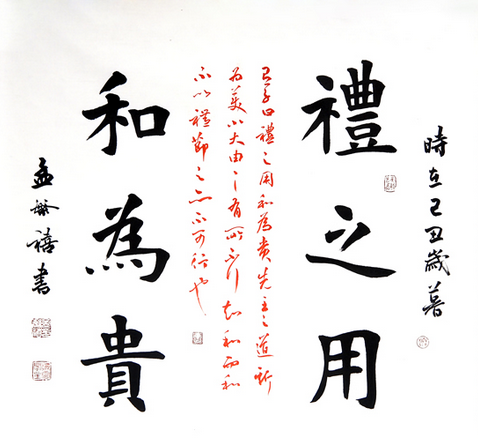 時在己丑歲暮
禮之用
有子曰禮之用和為貴先王之道斯
為美小大由之有所不行知和而和
不以禮節之亦不可行也
和為貴
孟繁禧書